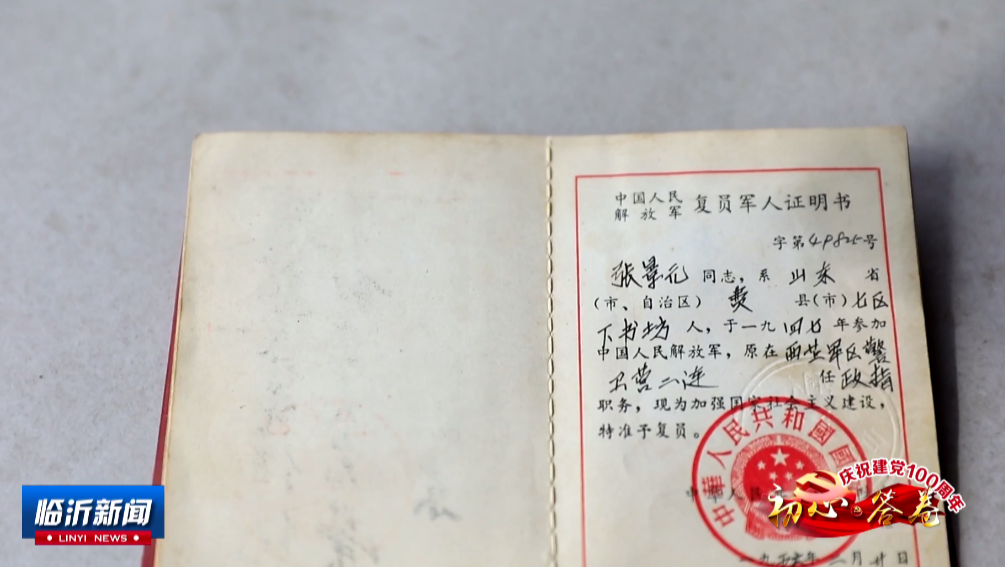 中国人民
解放军 复员军人证明书
字第49825号
张景元 同志，系 山东 省
（市、自治区） 费 县（市）七区
下书坊 人，于一九 四七 年参加
中国人民解放军，原在 西世军区警
卫营二连 任 政指
职务，现为加强国家社会主义建设，
特准予复员。
中華人民共和國國
一九五六年二月廿日
临沂新闻
LINYI NEWS
庆祝建党100周年
初心 答卷